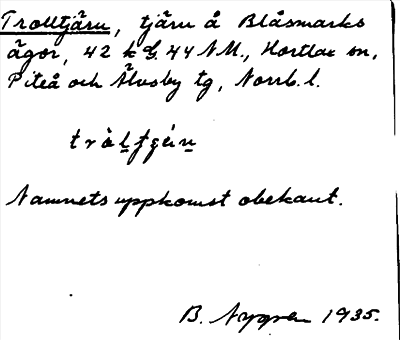 Trolltjärn, tjärn å Blåsmarks
ägor, 42 k G. 44 NM., Hortlax sn,
Piteå och Älvsby tg, Norrb. l.
Namnets uppkomst obekant.
B. Nygren 1935.